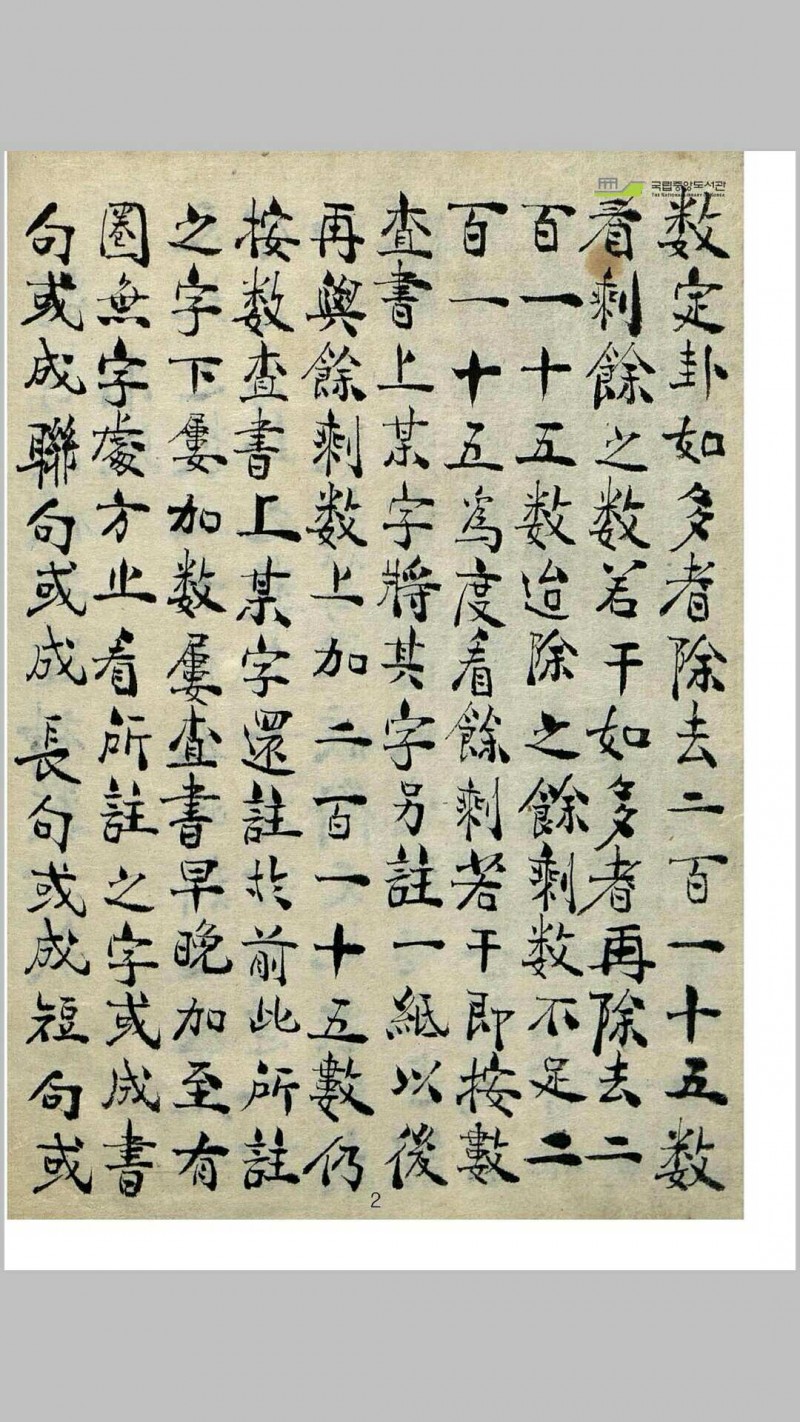 국립중앙도서관
THE NATIONAL LIBRARY OF KOREA
数定卦如多者除去二百一十五数
看剩餘之数若干如多者再除去二
百一十五数迨除之餘剩数不足二
百一十五爲度看餘剩若干即按數
查書上某字將其字另註一紙以後
再與餘剩数上加二百一十五數仍
按数查書上某字還註於前此所註
之字下屢加数屢查書早晚加至有
圈無字處方止看所註之字或成書
句或成聯句或成長句或成短句或
2